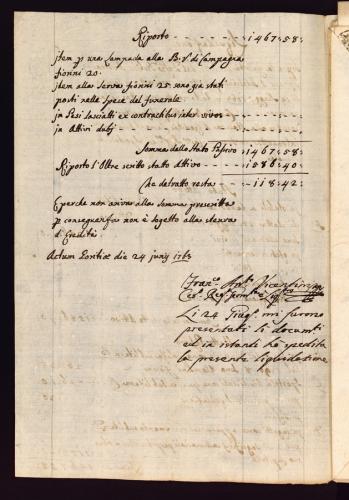 Riporto - - - - - 1467:58:
jtem p una Lampada alla B: V: di Campagna
fiorini 20.
jtem alla Serva fiorini 25 sono già stati
posti nelle Spese del funerale
in Pesi lasciatti ex contractibus inter vivos
in Attivi dubj - - -
Somma dello Stato Passivo - - - 1467:58:
Riporto l'Oltre scritto stato Attivo - - - 1586:40:
Che detratto resta - - - 118:42:
E perche non ariva alla Somma prescritta
p conseguenza non è sogetto alla
d'Eredità:
Actum die 24 junij 1763
Franco Ant:
Li 24 Giugo mi furono
presentati li documti
ed in istanti ho spedita
la presente liquidatione